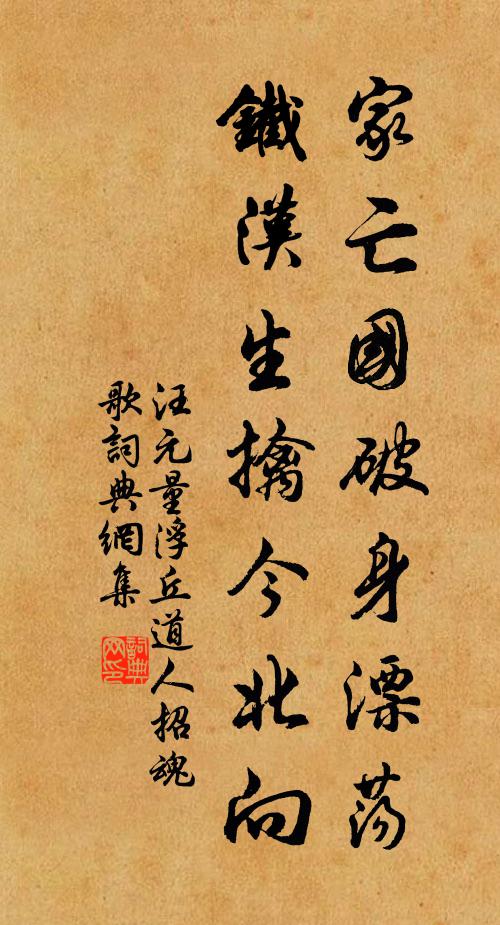 家亡國破身漂蕩
鐵漢生擒今北向
汪元量浮丘道人招魂
歌詞典網集
詞典網印